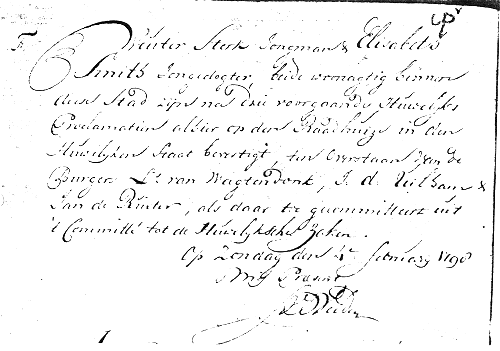 Wouter Sterk Jongman & Elisabeth
Smith Jongedogter, beide woonagtig binnen
dese Stad zijn na drie voorgaande Huwelijks
Proclamatien alhier op den Raadhuize in den
Huwelijken Staat bevestigt, ten Overstaan van de
Burgers Lt van Wagtendonk, J. d.
Jan de Ruiter, als daar te gecommitteert uit
't Committé tot de Huwelijksche Zaken.
Op Zondag den 4e february 1798
Mij Present